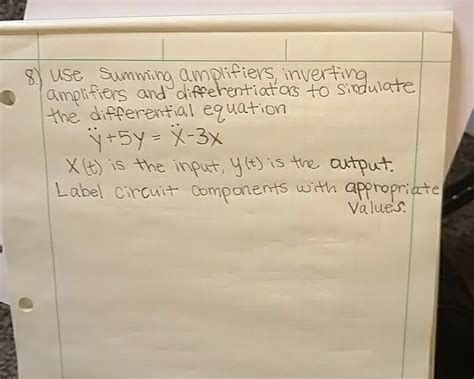 8.) use summing amplifiers, inverting
amplifiers and differentiators to simulate
the differential equation
ÿ+5y = ẍ-3x
X(t) is the input, y(t) is the output.
Label circuit components with appropriate
values.